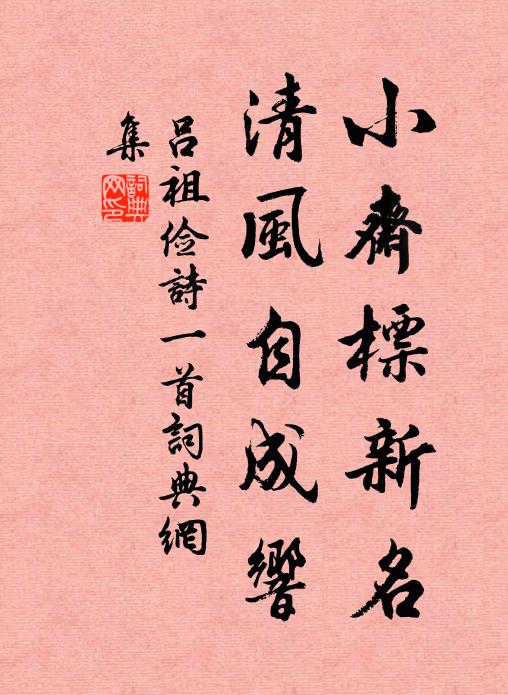 小齋標新名
清風自成響
呂祖儉詩一首詞典網
集
詞典
网印